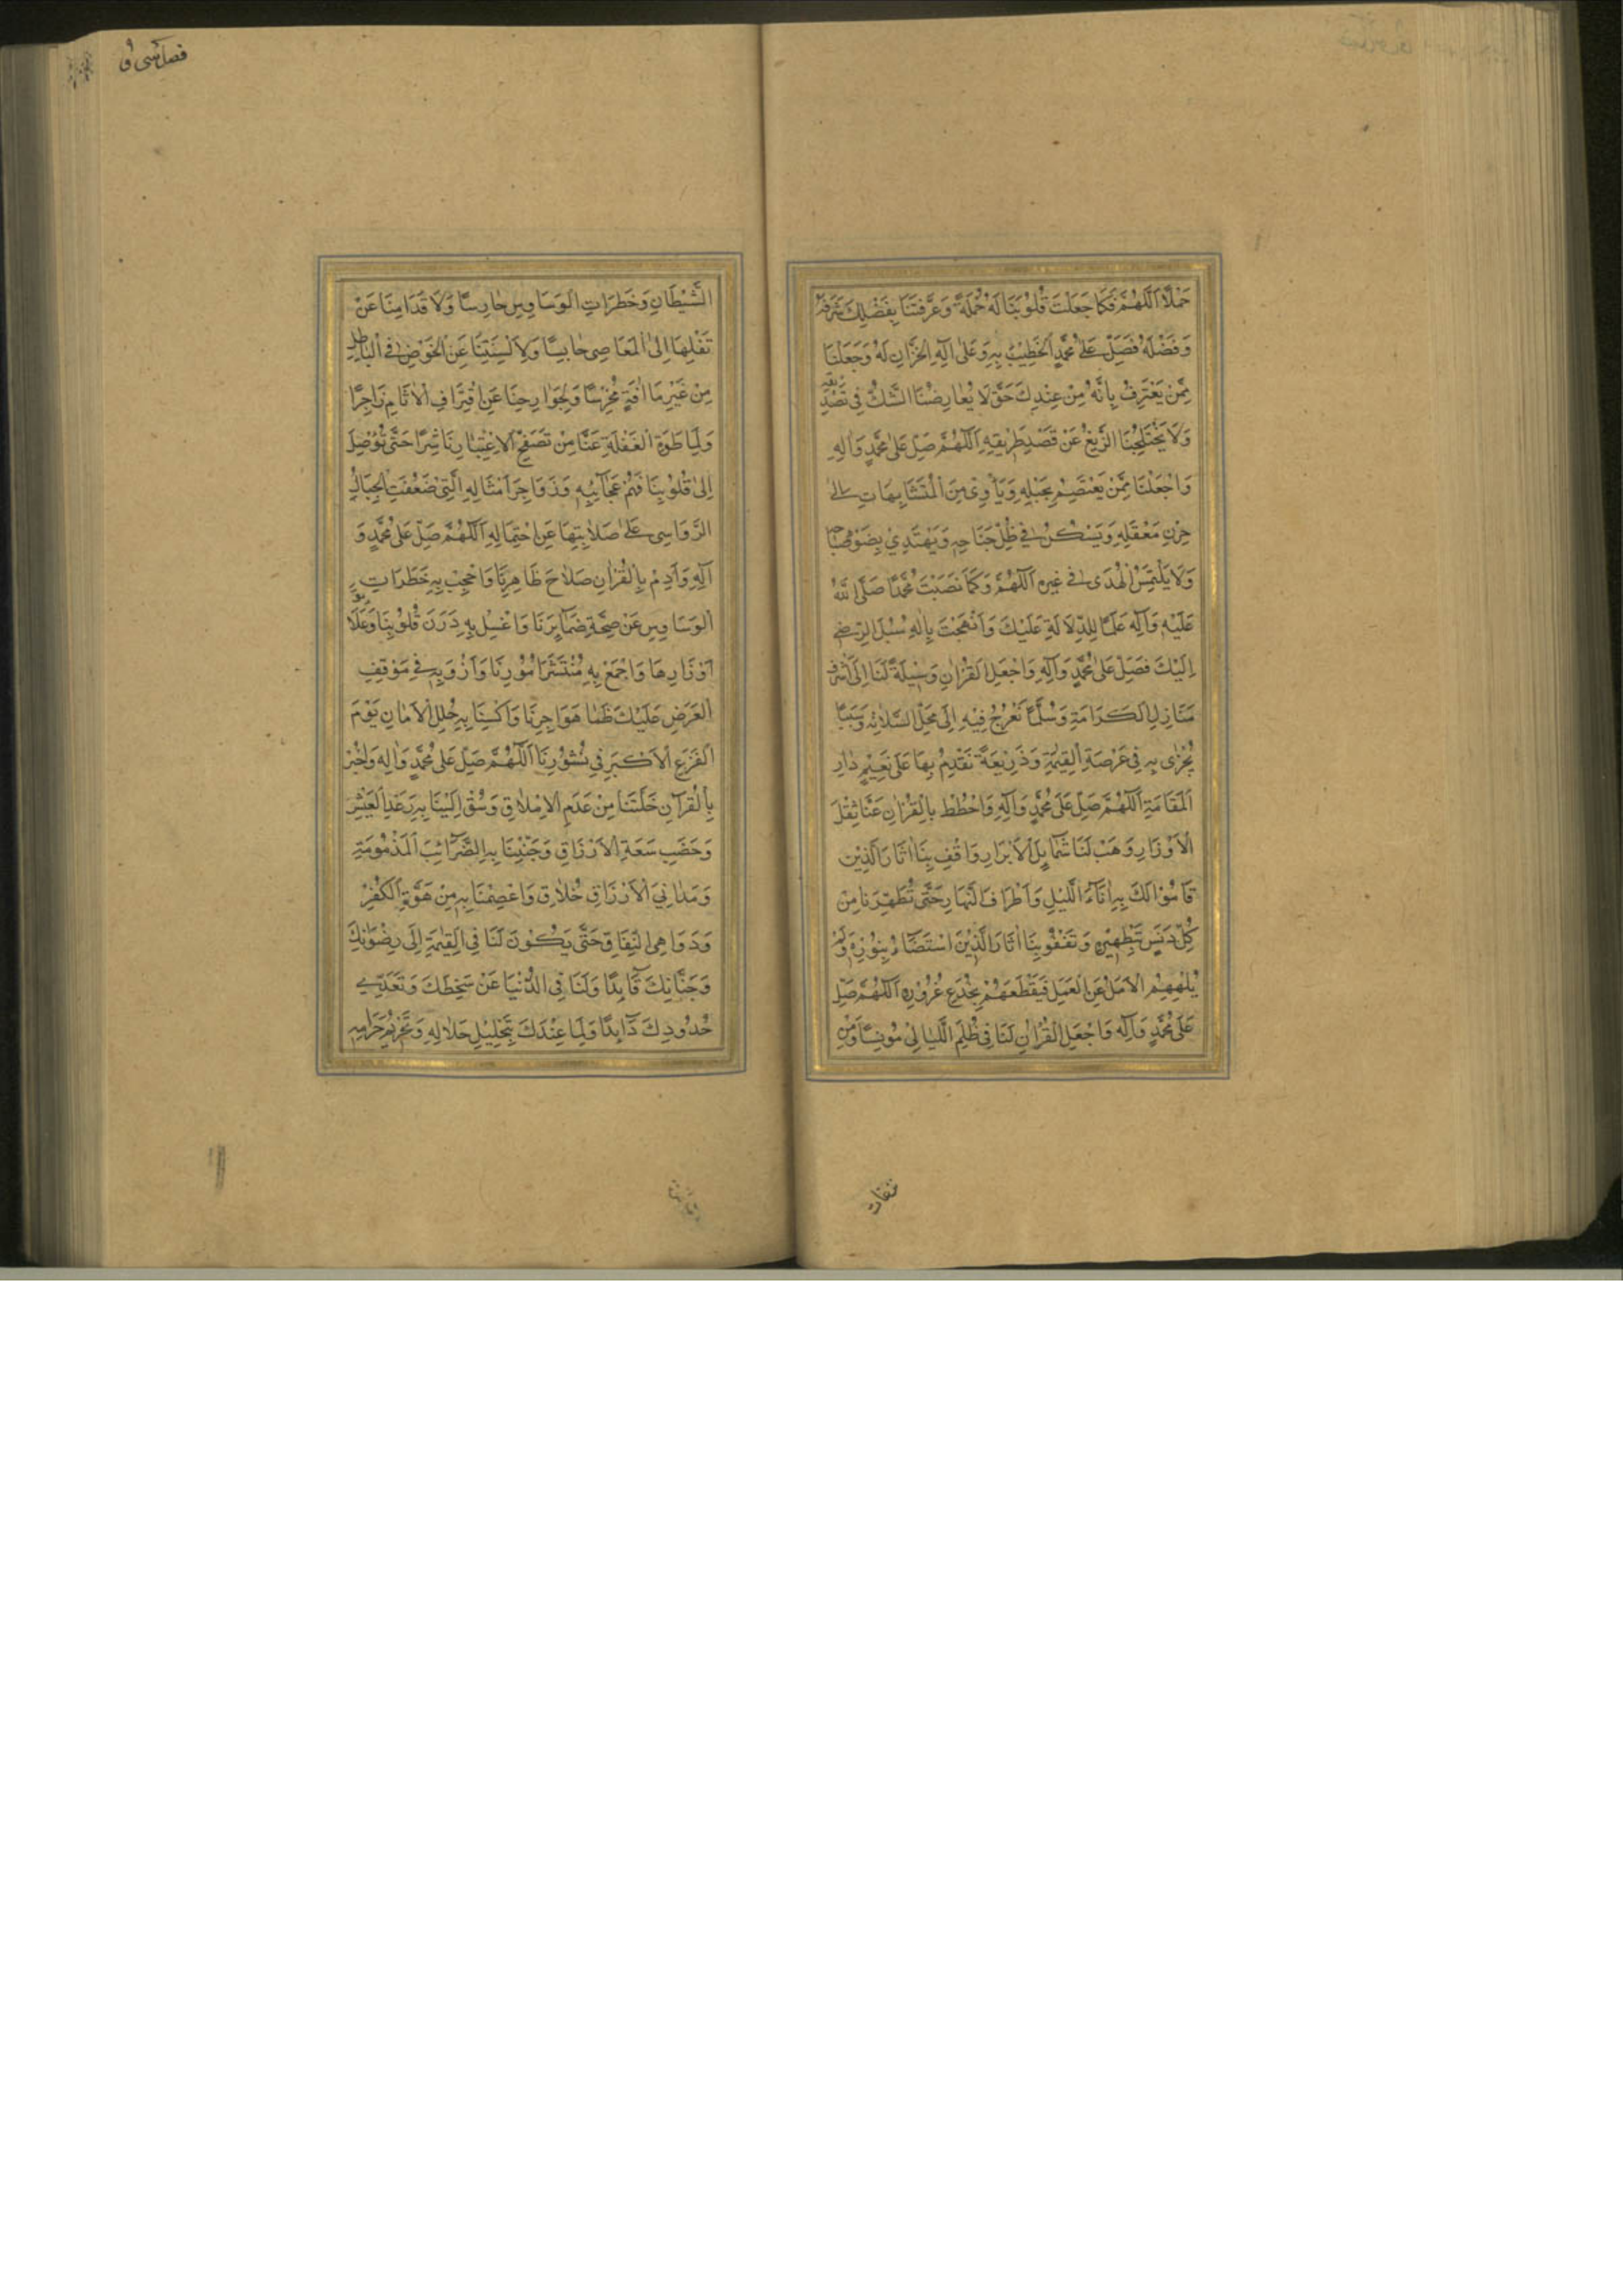 حَمْلَهُ اَللّٰهُمَّ فَكَمَا جَعَلْتَ قُلُوبَنَا لَهُ حَمَلَةً وَعَرَّفْتَنَا بِفَضْلِكَ شَرَفَهُ
وَفَضْلَهُ فَصَلِّ عَلٰى مُحَمَّدٍ الْخَطِيْبِ بِهِ وَعَلٰى اٰلِهِ الْخُزَّانِ لَهُ وَجَعَلْنَا
مِمَّنْ يَعْتَرِفُ بِاَنَّهُ مِنْ عِنْدِكَ حَتّٰى لَا يُعَارِضُنَا الشَّكُّ فِى تَصْدِيقِهِ
وَلَا يَخْتَلِجُنَا الزَّيْغُ عَنْ قَصْدِ طَرِيقِهِ اَللّٰهُمَّ صَلِّ عَلٰى مُحَمَّدٍ وَاٰلِهِ
وَاجْعَلْنَا مِمَّنْ يَعْتَصِمُ بِحَبْلِهِ وَيَأْوِى مِنَ الْمُتَشَابِهَاتِ اِلٰى
حِرْزِ مَعْقَلِهِ وَيَسْكُنُ فِى ظِلِّ جَنَاحِهِ وَيَهْتَدِيْ بِضَوْءِ صَبَاحِهِ
وَلَا يَلْتَمِسُ الْهُدَى فِى غَيْرِهِ اَللّٰهُمَّ وَكَمَا نَصَبْتَ مُحَمَّدًا صَلَّى اللّٰهُ
عَلَيْهِ وَاٰلِهِ عَلَمًا لِلدَّلَالَةِ عَلَيْكَ وَاَنْهَجْتَ بِاٰلِهِ سُبُلَ الرِّضٰى
اِلَيْكَ فَصَلِّ عَلٰى مُحَمَّدٍ وَاٰلِهِ وَاجْعَلِ الْقُرْاٰنَ وَسِيْلَةً لَنَا اِلٰى اَشْرَفِ
مَنَازِلِ الْكَرَامَةِ وَسُلَّمًا نَعْرُجُ فِيْهِ اِلٰى مَحَلِّ السَّلَامَةِ وَسَبَبًا
نُجْزٰى بِهِ فِى عَرْصَةِ الْقِيٰمَةِ وَذَرِيْعَةً نَقْدِمُ بِهَا عَلٰى نَعِيْمِ دَارِ
الْمُقَامَةِ اَللّٰهُمَّ صَلِّ عَلٰى مُحَمَّدٍ وَاٰلِهِ وَاحْطُطْ بِالْقُرْاٰنِ عَنَّا ثِقْلَ
الْاَوْزَارِ وَهَبْ لَنَا شَمَائِلَ الْاَبْرَارِ وَاقْفِ بِنَا اٰثَارَ الَّذِيْنَ
قَامُوْا لَكَ بِهِ اٰنَاءَ اللَّيْلِ وَاَطْرَافَ النَّهَارِ حَتّٰى تُطَهِّرَنَا مِنْ
كُلِّ دَنَسٍ بِتَطْهِيْرِهِ وَتَقْفُوَ بِنَا اٰثَارَ الَّذِيْنَ اسْتَضَاءُوا بِنُوْرِهِ وَلَمْ
يُلْهِهِمُ الْاَمَلُ عَنِ الْعَمَلِ فَيَقْطَعَهُمْ بِخُدَعِ غُرُوْرِهِ اَللّٰهُمَّ صَلِّ
عَلٰى مُحَمَّدٍ وَاٰلِهِ وَاجْعَلِ الْقُرْاٰنَ لَنَا فِى ظُلَمِ اللَّيَالِيْ مُوْنِسًا وَمِنْ
فصل سى و
الشَّيْطَانِ وَخَطَرَاتِ الْوَسَاوِسِ حَارِسًا وَلِاَقْدَامِنَا عَنْ
نَقْلِهَا اِلَى الْمَعَاصِى حَابِسًا وَلِاَلْسِنَتِنَا عَنِ الْخَوْضِ فِى الْبَاطِلِ
مِنْ غَيْرِ مَا اٰفَةٍ مُخْرِسًا وَلِجَوَارِحِنَا عَنِ اقْتِرَافِ الْاٰثَامِ زَاجِرًا
وَلِمَا طَوَتِ الْغَفْلَةُ عَنَّا مِنْ تَصَفُّحِ الْاِعْتِبَارِ نَاشِرًا حَتّٰى تُوْصِلَ
اِلٰى قُلُوْبِنَا فَهْمَ عَجَائِبِهِ وَزَوَاجِرَ اَمْثَالِهِ الَّتِيْ ضَعُفَتِ الْجِبَالُ
الرَّوَاسِى عَلٰى صَلَابَتِهَا عَنِ احْتِمَالِهِ اَللّٰهُمَّ صَلِّ عَلٰى مُحَمَّدٍ وَ
اٰلِهِ وَاَدِمْ بِالْقُرْاٰنِ صَلَاحَ ظَاهِرِنَا وَاحْجُبْ بِهِ خَطَرَاتِ
الْوَسَاوِسِ عَنْ صِحَّةِ ضَمَائِرِنَا وَاغْسِلْ بِهِ دَرَنَ قُلُوْبِنَا وَعَلَائِقَ
اَوْزَارِهَا وَاجْمَعْ بِهِ مُنْتَشَرَ اُمُوْرِنَا وَاَرْوِ بِهِ فِى مَوْقِفِ
الْعَرْضِ عَلَيْكَ ظَمَا هَوَاجِرِنَا وَاكْسُنَا بِهِ حُلَلَ الْاَمَانِ يَوْمَ
الْفَزَعِ الْاَكْبَرِ فِى نُشُوْرِنَا اَللّٰهُمَّ صَلِّ عَلٰى مُحَمَّدٍ وَاٰلِهِ وَاجْبُرْ
بِالْقُرْاٰنِ خَلَّتَنَا مِنْ عَدَمِ الْاِمْلَاقِ وَسُقْ اِلَيْنَا بِهِ رَغَدَ الْعَيْشِ
وَخَصْبَ سَعَةِ الْاَرْزَاقِ وَجَنِّبْنَا بِهِ الضَّرَائِبَ الْمَذْمُوْمَةَ
وَمَدَانِيَ الْاَرْزَاقِ خُلَاقِ وَاعْصِمْنَا بِهِ مِنْ هُوَّةِ الْكُفْرِ
وَدَوَاعِى النِّفَاقِ حَتّٰى يَكُوْنَ لَنَا فِى الْقِيٰمَةِ اِلٰى رِضْوَانِكَ
وَجِنَانِكَ قَائِدًا وَلَنَا فِى الدُّنْيَا عَنْ سَخَطِكَ وَتَعَدِّى
حُدُوْدِكَ ذَائِدًا وَلِمَا عِنْدَكَ بِتَحْلِيْلِ حَلَالِهِ وَتَحْرِيْمِ حَرَامِهِ